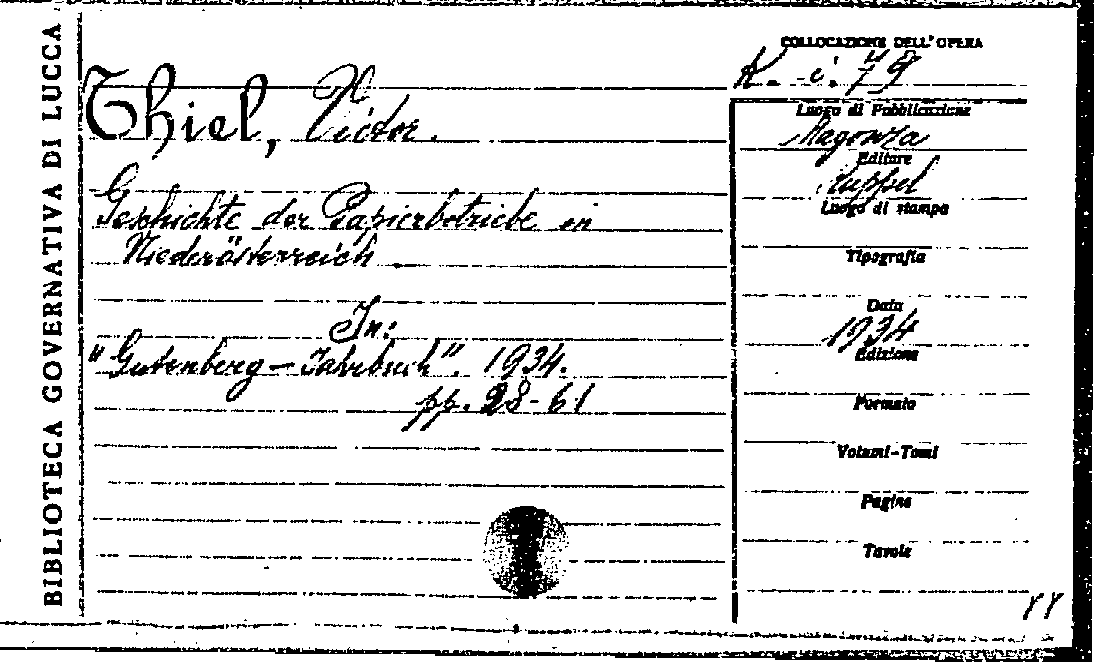 BIBLIOTECA GOVERNATIVA DI LUCCA
COLLOCAZIONE DELL'OPERA
K. i. 79
Thiel, Victor.
Geschichte der Papierbetriebe in
Niederösterreich
In:
"Gutenberg - Jahrbuch". 1934.
pp. 28-61
Luogo di Pubblicazione
Magonza
Editore
Ruppel
Luogo di stampa
Tipografia
Data
1934
Edizione
Formato
Volumi-Tomi
Pagine
Tavole